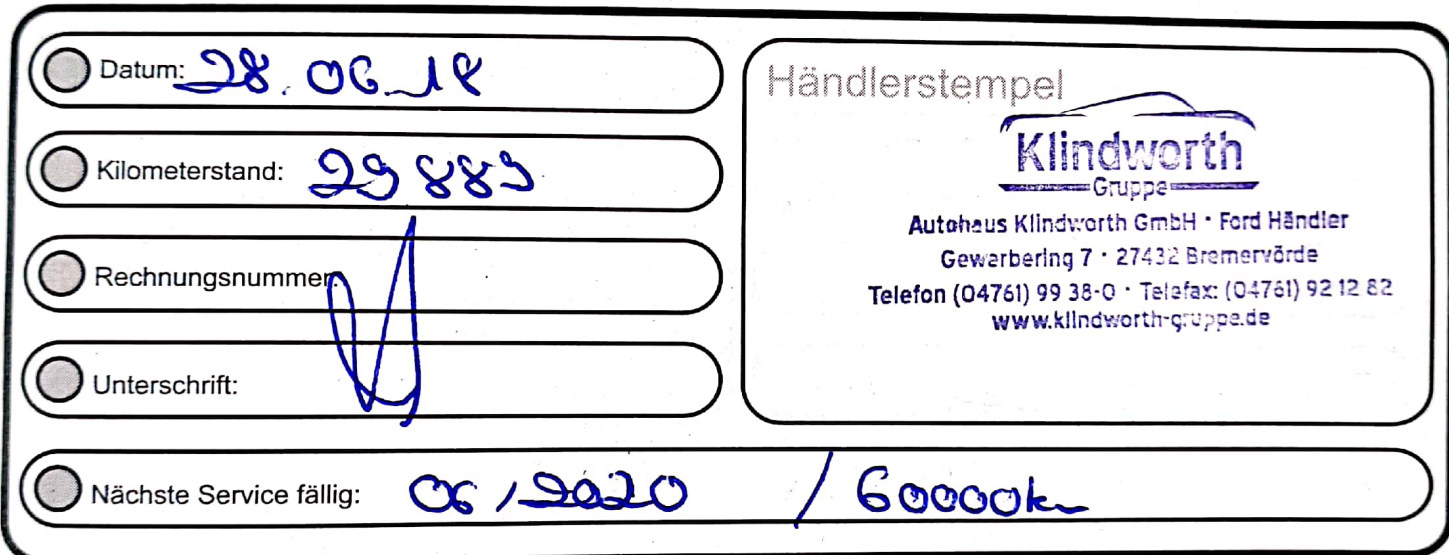 Datum: 28.06.18
Kilometerstand: 29 889
Rechnungsnummer:
Unterschrift:
Nächste Service fällig: 06/2020 / 60000km
Händlerstempel
Klindworth
Gruppe
Autohaus Klindworth GmbH · Ford Händler
Gewerbering 7 · 27432 Bremervörde
Telefon (04761) 99 38-0 · Telefax: (04761) 92 12 82
www.klindworth-gruppe.de